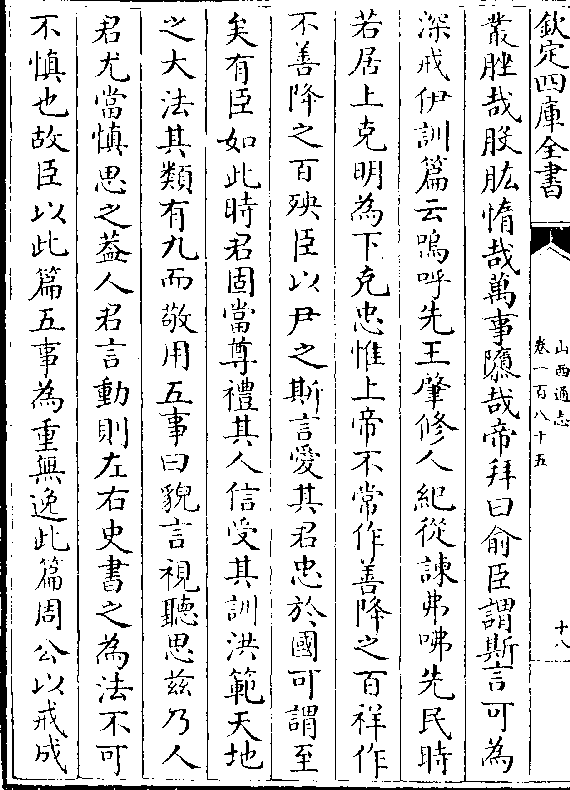 欽定四庫全書
山西通志
卷一百八十五
十八
叢脞哉股肱惰哉萬事隳哉帝拜曰俞臣謂斯言可為
深戒伊訓篇云嗚呼先王肇修人紀從諫弗咈先民時
若居上克明為下克忠惟上帝不常作善降之百祥作
不善降之百殃臣以尹之斯言愛其君忠於國可謂至
矣有臣如此時君固當尊禮其人信受其訓洪範天地
之大法其類有九而敬用五事曰貌言視聽思兹乃人
君尤當慎思之葢人君言動則左右史書之為法不可
不慎也故臣以此篇五事為重無逸此篇周公以戒成